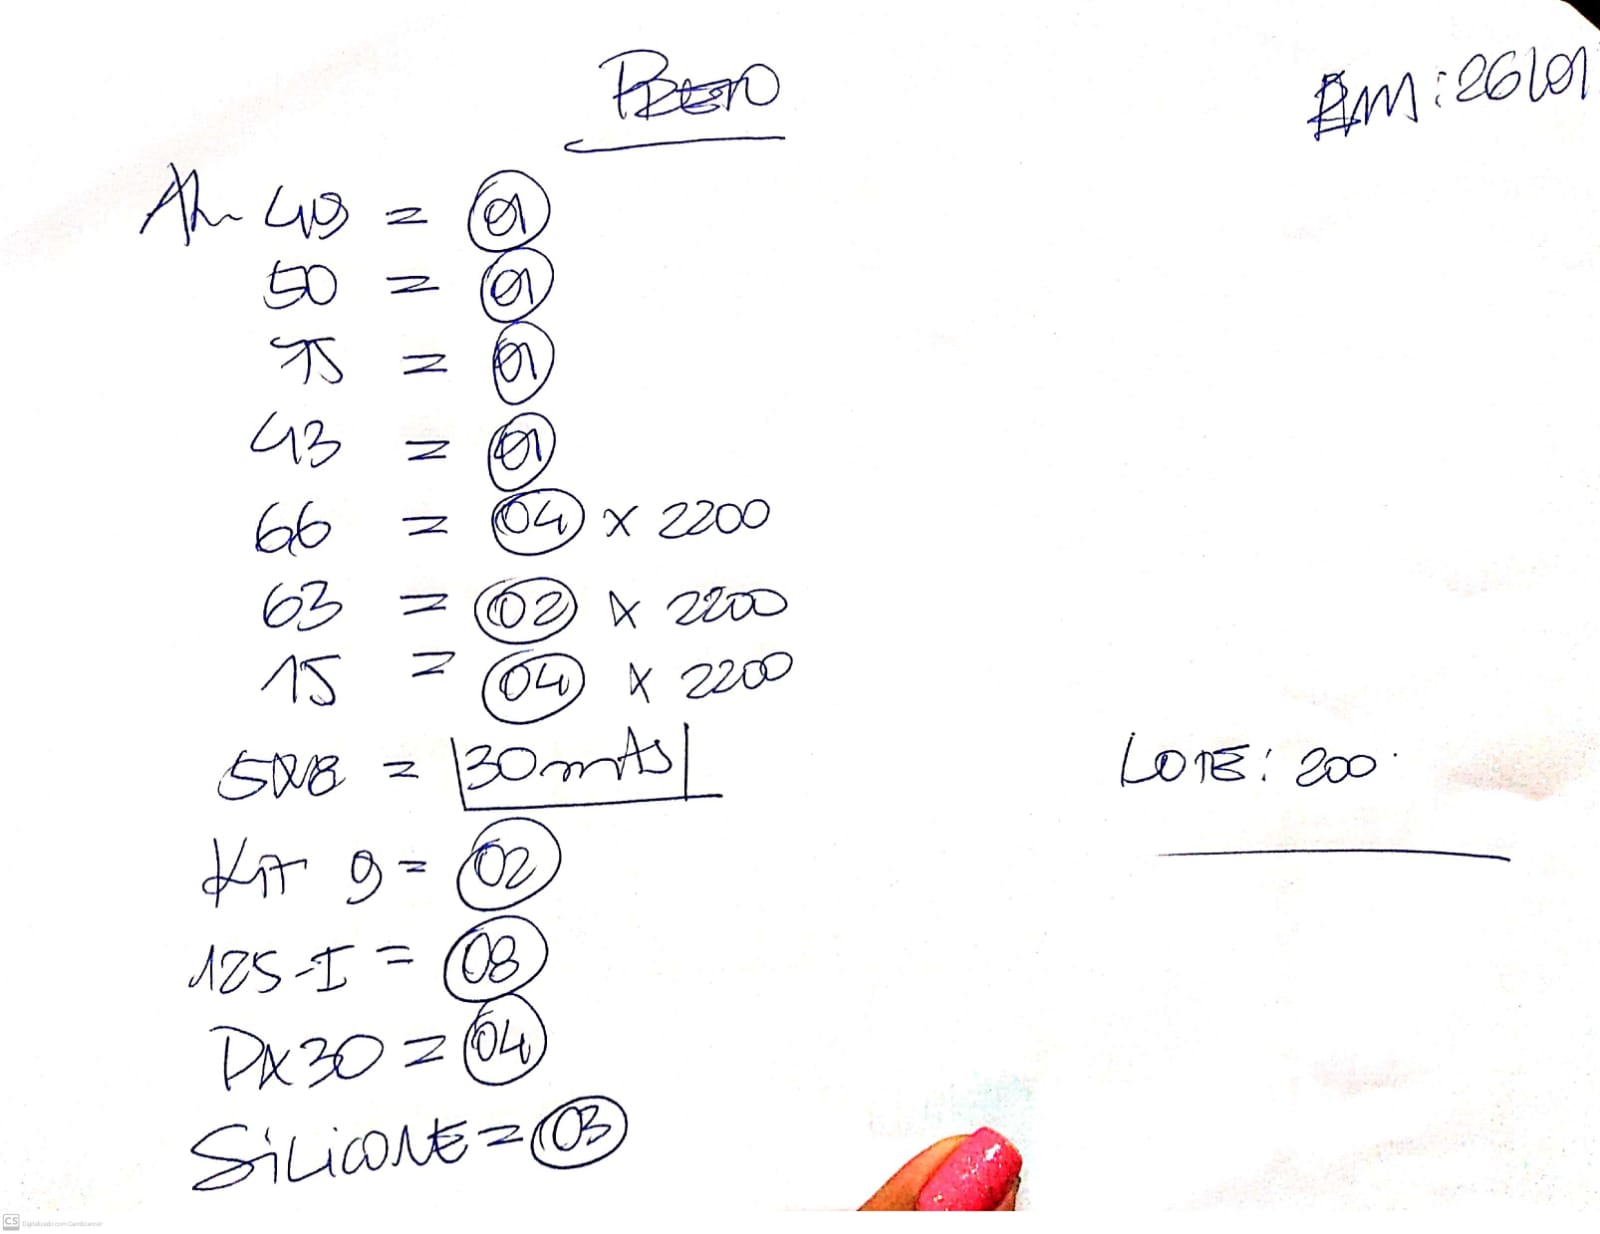 PRETO
EM: 26/01
AL 49 = 01
50 = 01
75 = 01
43 = 01
66 = 04 x 2200
63 = 02 x 2200
15 = 04 x 2200
5x8 = 30 mts
LOTE: 200
Kit 9 = 02
125-I = 08
PX30 = 04
SiLiCONE = 03
CS Digitalizado com CamScanner